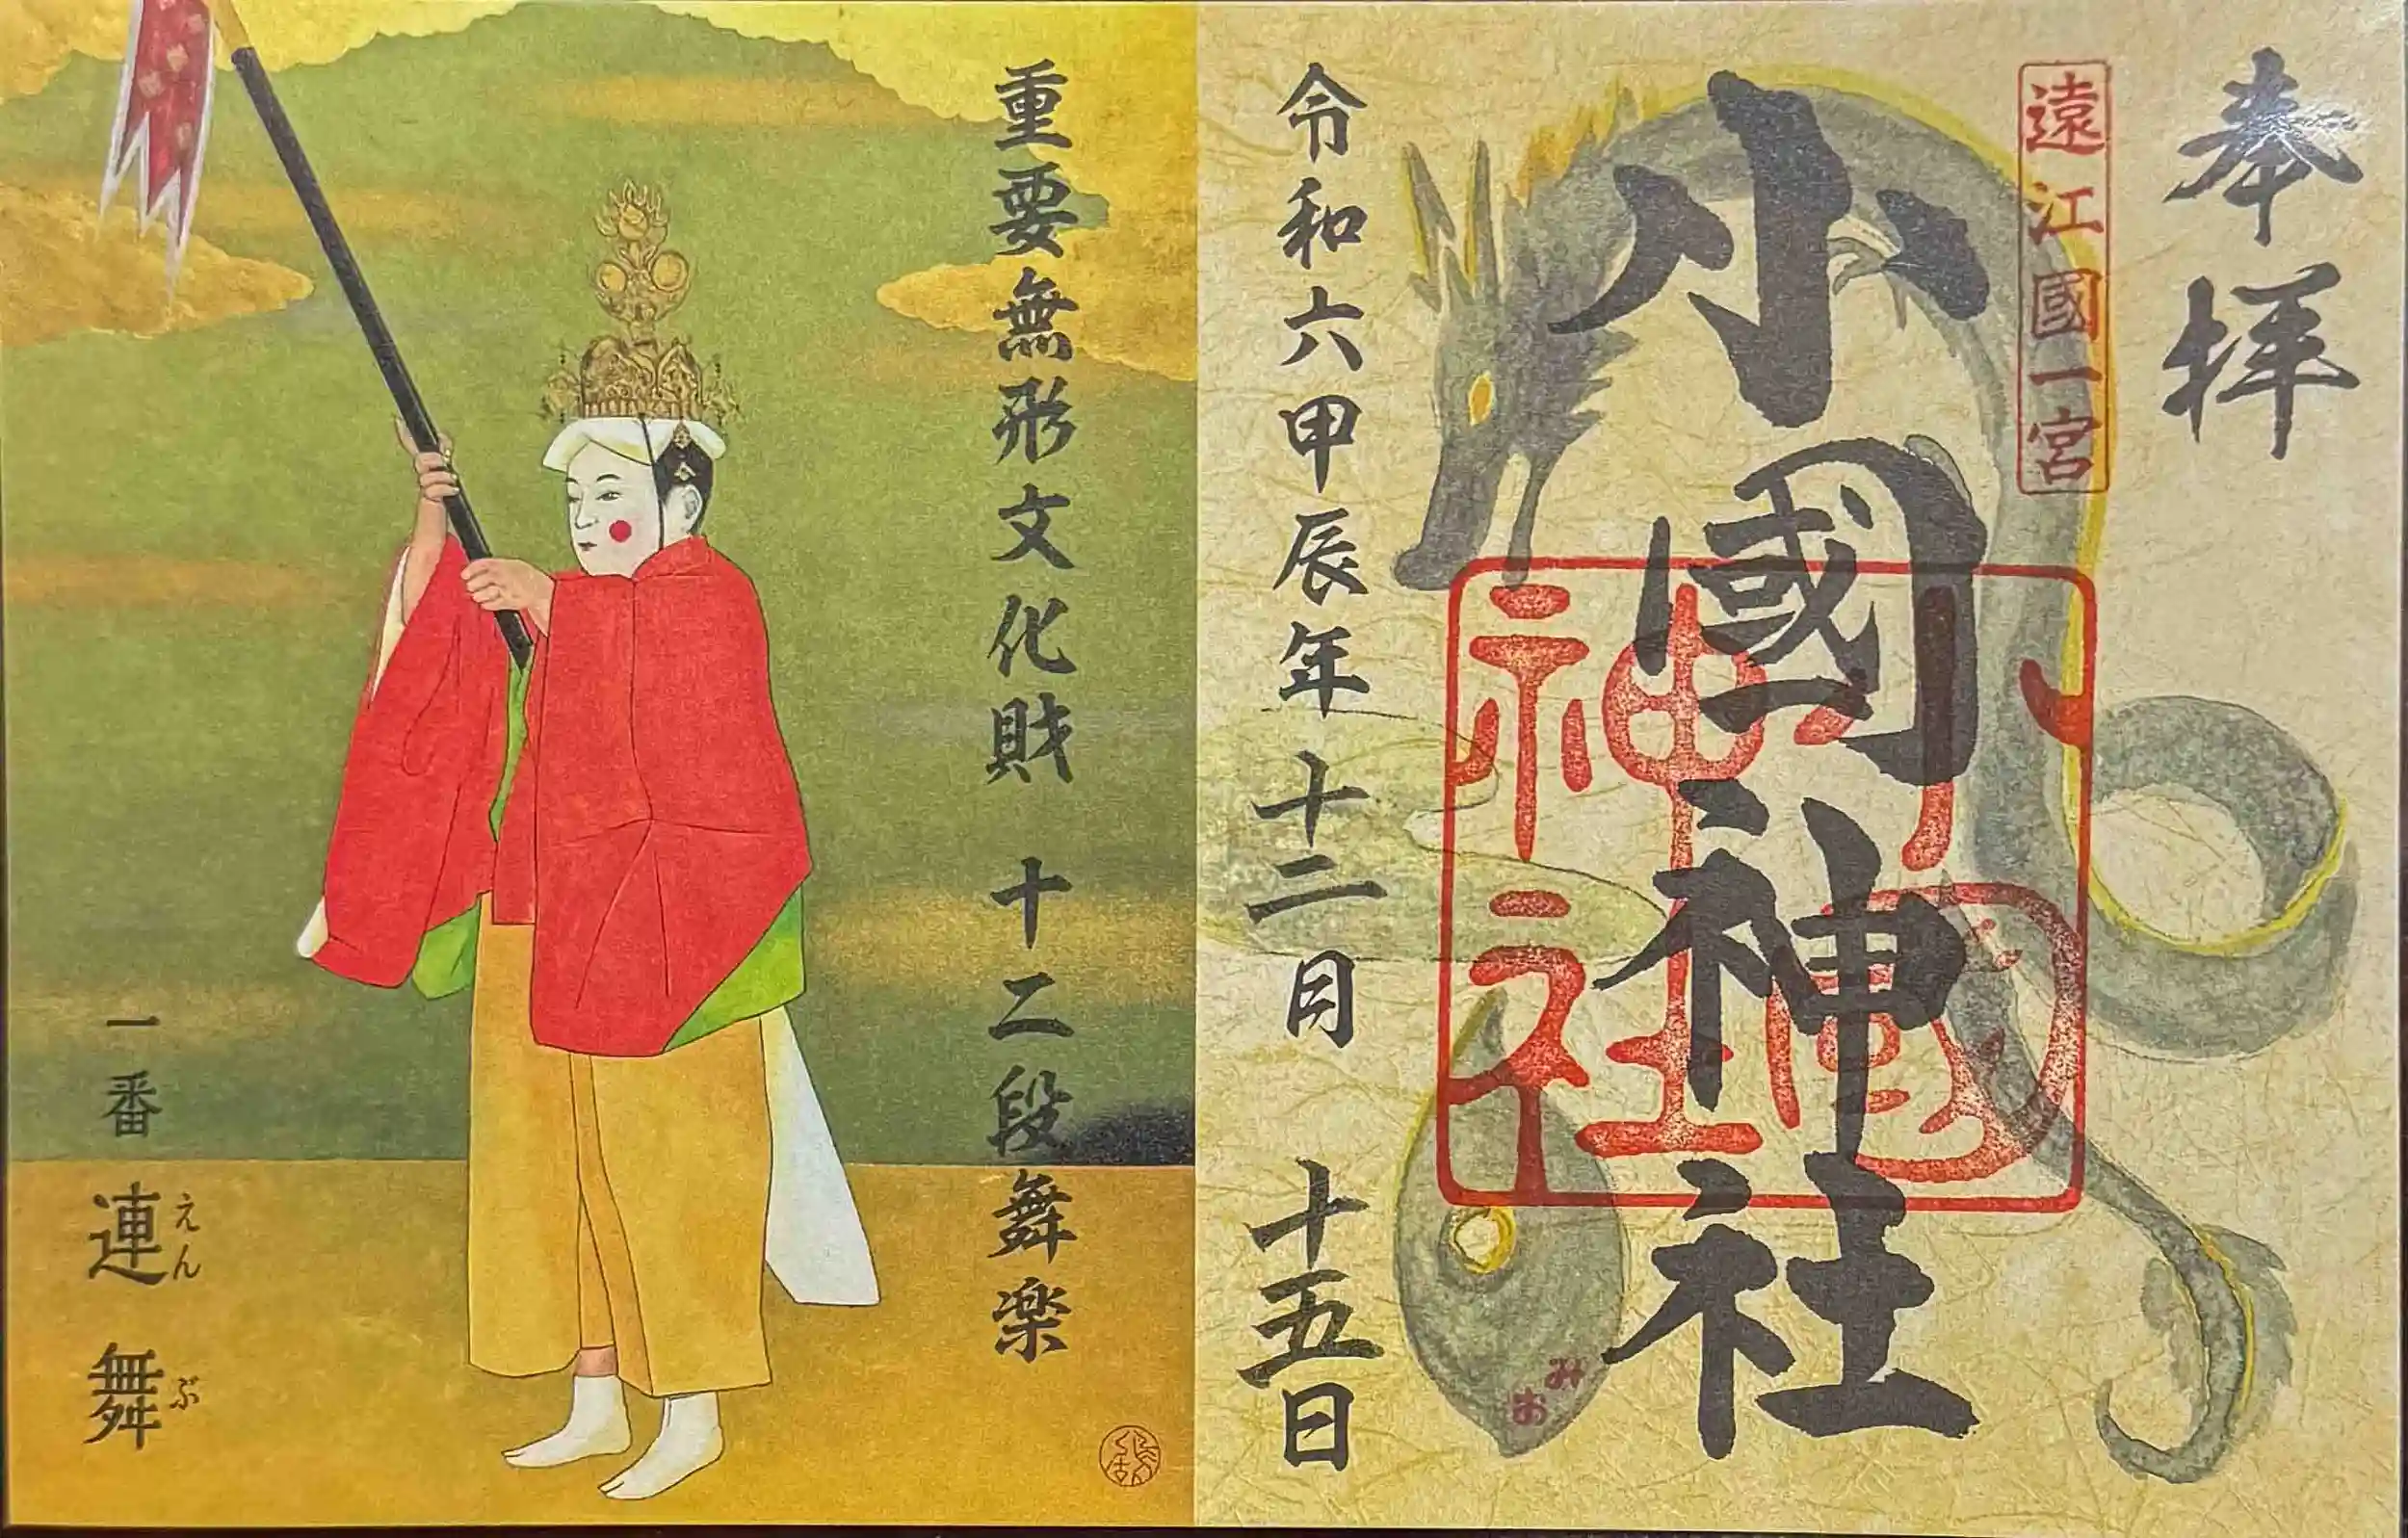 奉拝
遠江國一宮
小國神社
小國神社
令和六甲辰年十二月十五日
みお
重要無形文化財 十二段舞楽
一番 連舞
えんぶ